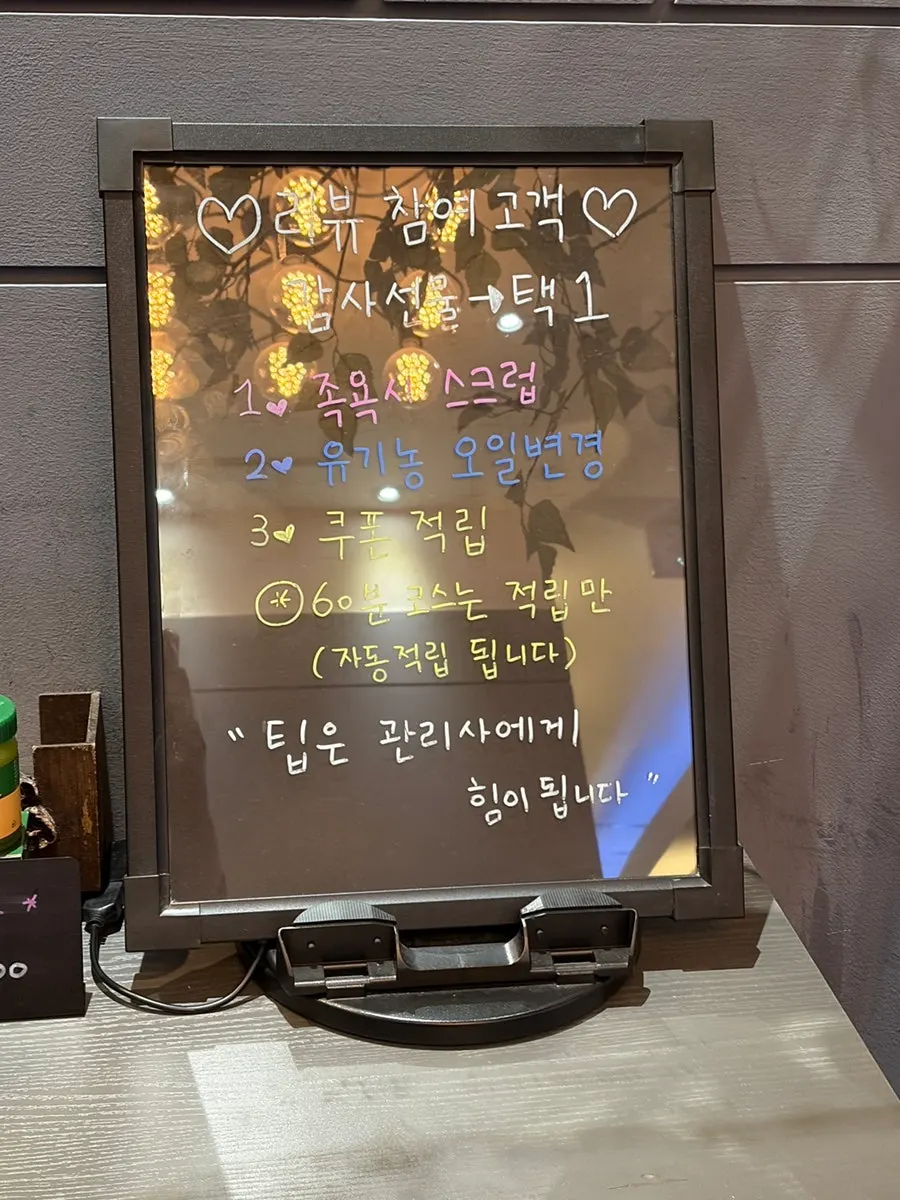 ♡ 리뷰 참여 고객 ♡
감사선물→택 1
1♥ 족욕시 스크럽
2♥ 유기농 오일변경
3♥ 쿠폰 적립
⊛ 60분 코스는 적립만
(자동적립 됩니다)
“ 팁은 관리사에게
힘이 됩니다 ”
*
00